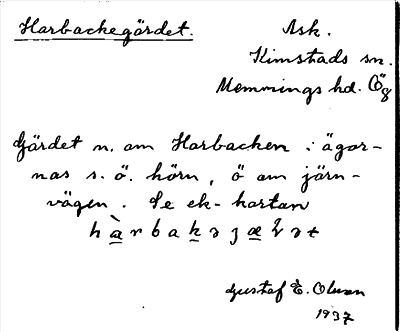 Harbackegärdet.
Ask.
Kimstads sn.
Memmings hd. Ög
Gärdet n. om Harbacken i ägor-
nas s. ö. hörn, ö om järn-
vägen. Se ek-kartan
hàrbakɜʒæ̱ɜt
Gustaf E. Olsson
1937